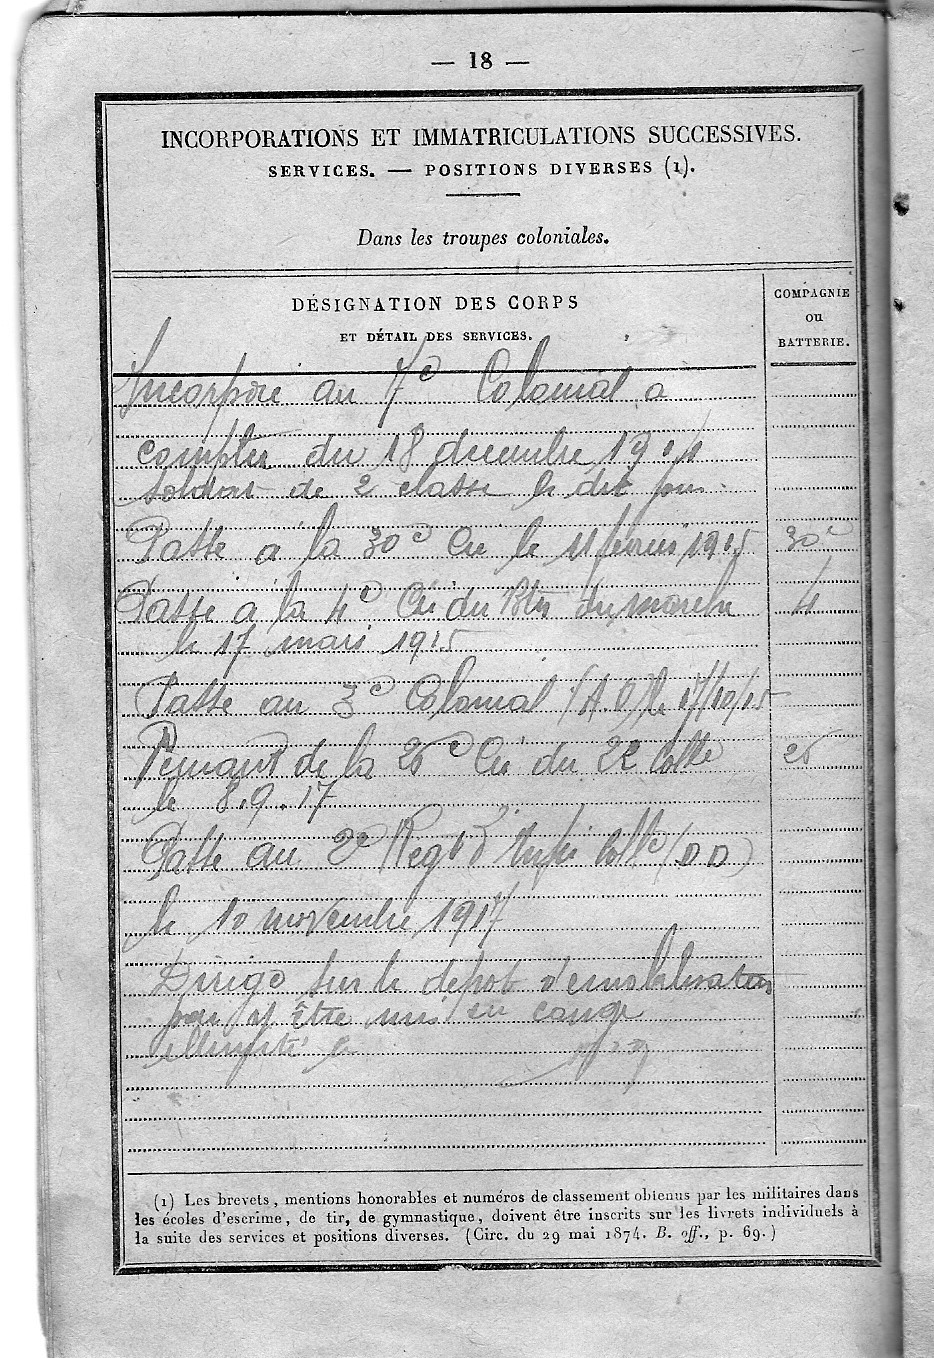 — 18 —
INCORPORATIONS ET IMMATRICULATIONS SUCCESSIVES.
SERVICES. — POSITIONS DIVERSES (1).
Dans les troupes coloniales.
DÉSIGNATION DES CORPS
ET DÉTAIL DES SERVICES.
COMPAGNIE
ou
BATTERIE.
Incorporé au 7e Colonial a
compter du 18 decembre 1914
soldat de 2 classe le dit jour
Passé a la 30e Cie le 11 fevrier 1915 30e
Passé a la 4e Cie du Bton du marche 4
le 17 mars 1915
Passe au 3e Colonial (A.O) le 17/10/15
Venant de la 26e Cie du 22 Colle 26
le 8.9.17
Passe au 2e Regt d'Infie Colle (DD)
le 10 novembre 1917
Dirigé sur le depot demobilisateur
pour y être mis en congé
illimité le
(1) Les brevets, mentions honorables et numéros de classement obtenus par les militaires dans
les écoles d'escrime, de tir, de gymnastique, doivent être inscrits sur les livrets individuels à
la suite des services et positions diverses. (Circ. du 29 mai 1874. B. off., p. 69.)